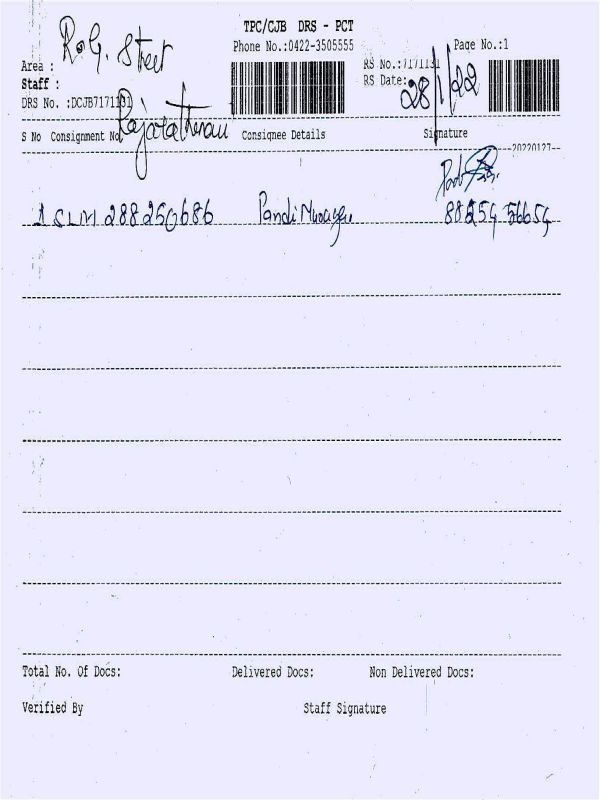 TPC/CJB DRS - PCT
R.G. Street
Phone No.:0422-3505555
Page No.:1
Area :
RS No.:7171131
Staff :
RS Date:
28/1/22
DRS No. :DCJB7171131
S No Consignment No. Consignee Details Signature
20220127
1 SLM 288250686 Pandi Murugan
88254 56654
Total No. Of Docs: Delivered Docs: Non Delivered Docs:
Verified By Staff Signature